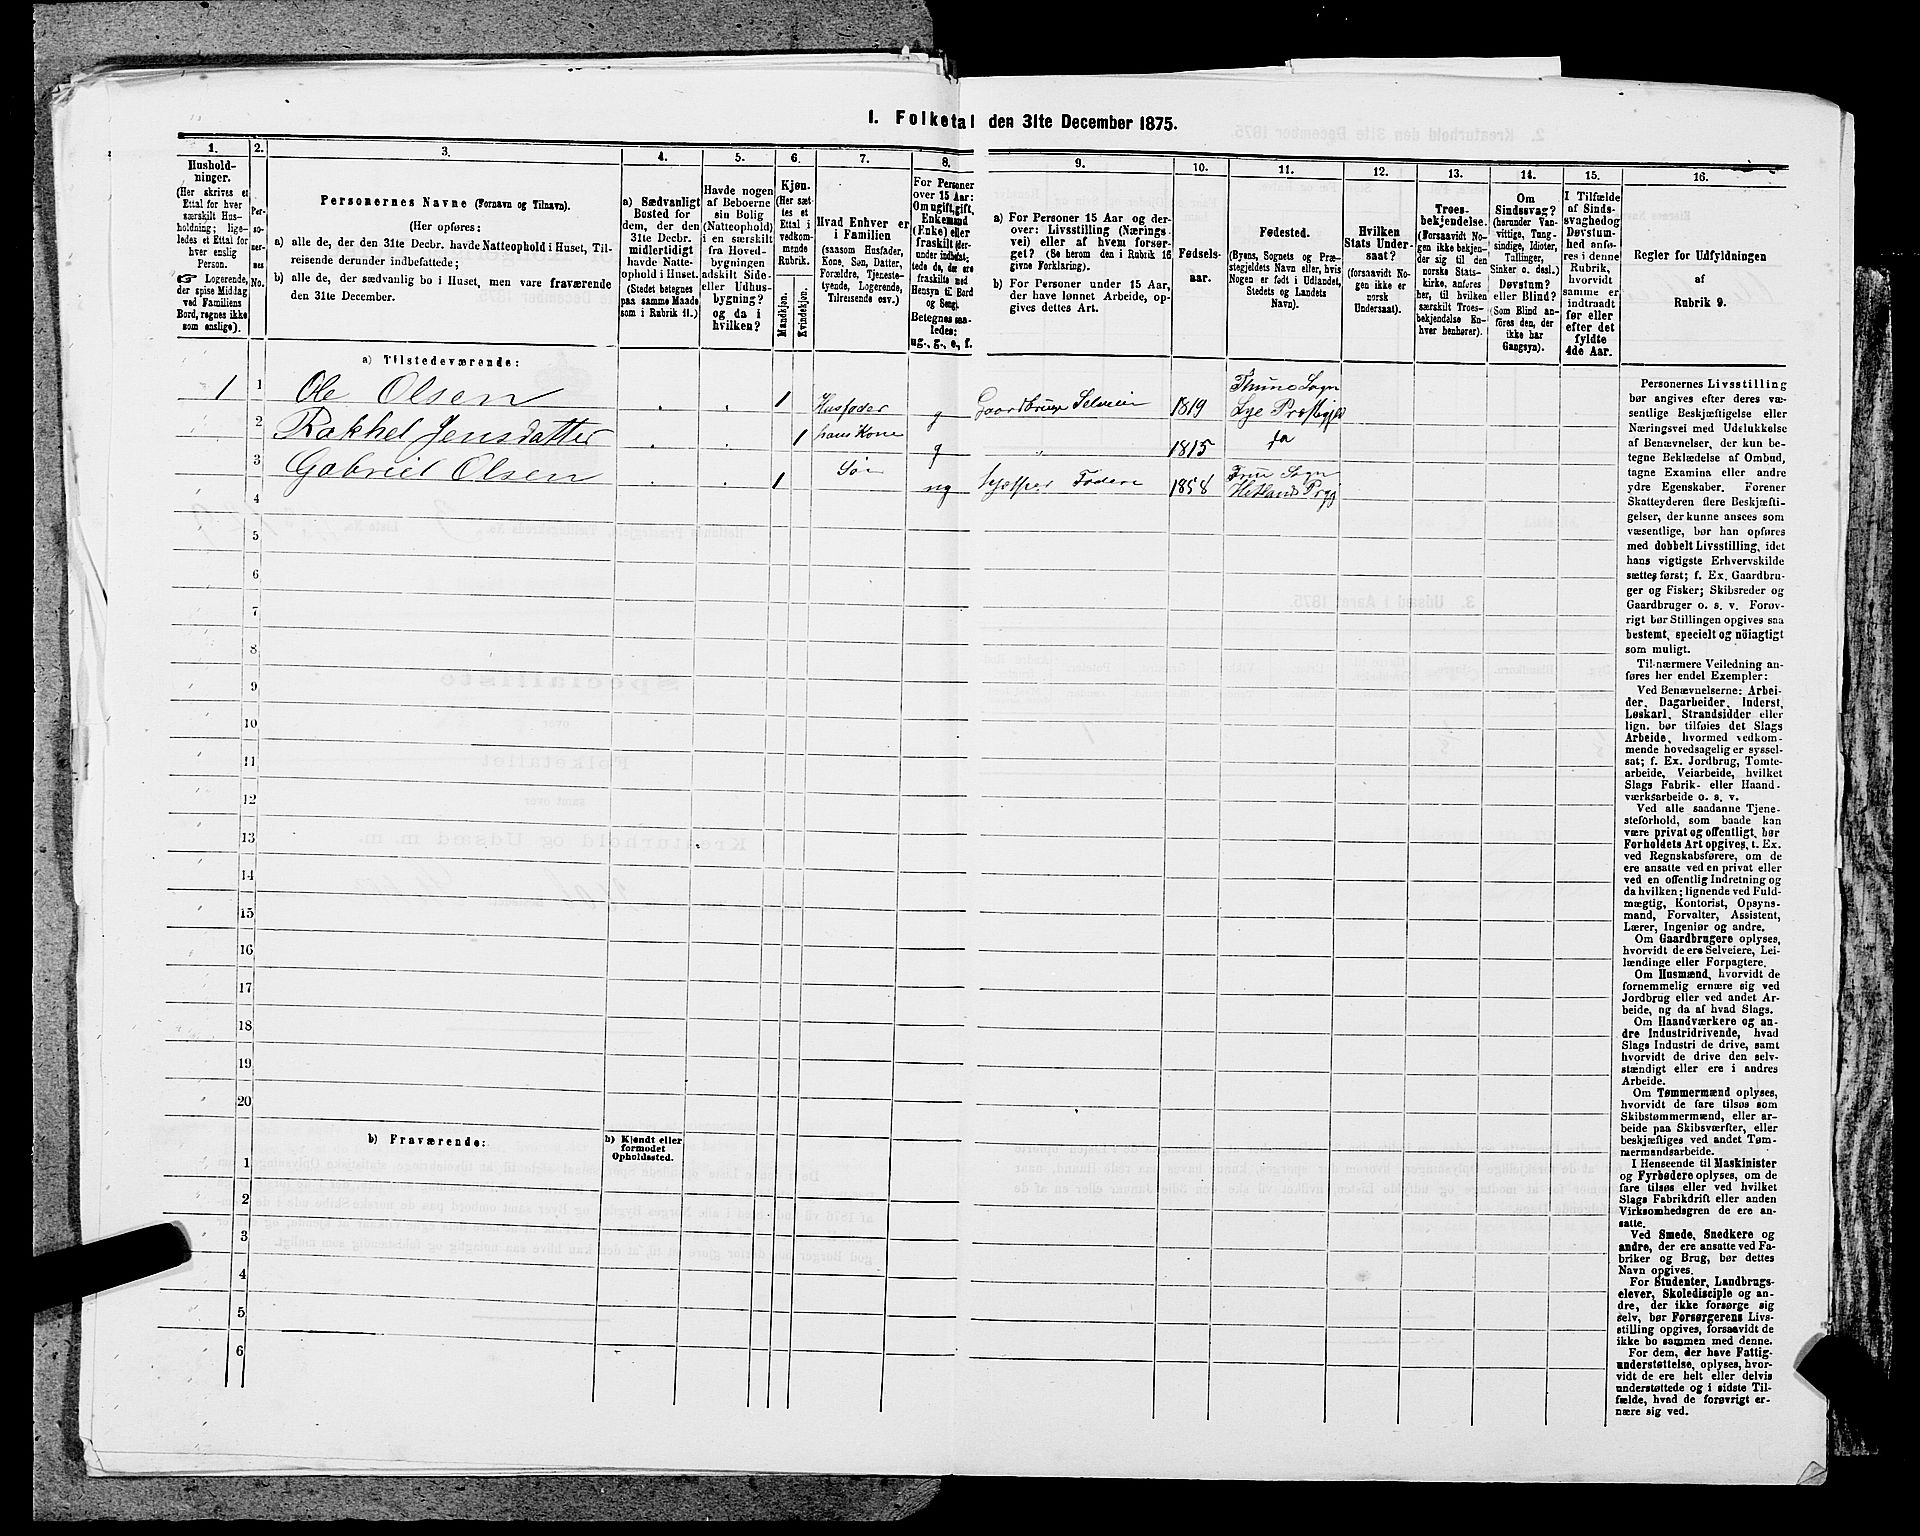 I. Folketal den 31te December 1875.
1.
Hushold-
ninger.
(Her skrives et
Ettal for hver
særskilt Hus-
holdning; lige-
ledes et Ettal for
hver enslig
Person.
Logerende,
der spise Middag
ved Familiens
Bord, regnes ikke
som enslige).
2.
Per-
so-
ner-
nes
No.
3.
Personernes Navne (Fornavn og Tilnavn).
(Her opføres:
a) alle de, der den 31te Decbr. havde Natteophold i Huset, Til-
reisende derunder indbefattede;
b) alle de, der sædvanlig bo i Huset, men vare fraværende
den 31te December.
4.
a) Sædvanligt
Bosted for
dem, der den
31te Decbr.
midlertidigt
havde Natte-
ophold i Huset.
(Stedet betegnes
paa samme Maade
som i Rubrik 11.)
5.
Havde nogen
af Beboerne
sin Bolig
(Natteophold)
i en særskilt
fra Hoved-
bygningen
adskilt Side-
eller Udhus-
bygning?
og da i
hvilken?
6.
Kjøn.
(Her sæt-
tes et
Ettal i
vedkom-
mende
Rubrik.
Mandkjøn.
Kvindekjøn.
7.
Hvad Enhver er
i Familien
(saasom Husfader,
Kone, Søn, Datter,
Forældre, Tjeneste-
tyende, Logerende,
Tilreisende osv.)
8.
For Personer
over 15 Aar:
Om ugift, gift,
Enkemand
(Enke) eller
fraskilt (der-
under indbefat-
tede da, de ere
fraskilte med
Hensyn til Bord
og Seng).
Betegnes saa-
ledes:
ug., g., e., f.
9.
a) For Personer 15 Aar og der-
over: Livsstilling (Nærings-
vei) eller af hvem forsør-
get? (Se herom den i Rubrik 16
givne Forklaring).
b) For Personer under 15 Aar,
der have lønnet Arbeide, op-
gives dettes Art.
10.
Fødsels-
aar.
11.
Fødested.
(Byens, Sognets og Præ-
stegjeldets Navn eller, hvis
Nogen er født i Udlandet,
Stedets og Landets
Navn).
12.
Hvilken
Stats Under-
saat?
(forsaavidt No-
gen ikke er
norsk
Undersaat).
13.
Troes-
bekjendelse.
(Forsaavidt No-
gen ikke bekjen-
der sig til den
norske Stats-
kirke, anføres
her, til hvilken
særskilt Troes-
bekjendelse En-
hver henhører).
14.
Om
Sindssvag?
(herunder Van-
vittige, Tung-
sindige, Idioter,
Tullinger,
Sinker o. desl.)
Døvstum?
eller Blind?
(Som Blind an-
føres den, der
ikke har
Gangsyn).
15.
I Tilfælde
af Sinds-
svaghed og
Døvstum-
hed anfø-
res i denne
Rubrik,
hvorvidt
samme er
indtraadt
før eller
efter det
fyldte
4de Aar.
16.
Regler for Udfyldningen
af
Rubrik 9.
a) Tilstedeværende:
1 1 Ole Olsen 1 Husfader g Gaardbruger Selveier 1819 Thime Sogn Lye Præstegj
2 Rakhel Jensdatter 1 hans Kone g " 1815 do
3 Gabriel Olsen 1 Søn ug hjelper Fader 1858 Frue Sogn Hetlands Prgj
4
5
6
7
8
9
10
11
12
13
14
15
16
17
18
19
20
b) Fraværende:
b) Kjendt eller
formodet
Opholdssted.
1
2
3
4
5
6
Personernes Livsstilling
bør angives efter deres væ-
sentlige Beskjæftigelse eller
Næringsvei med Udelukkelse
af Benævnelser, der kun be-
tegne Beklædelse af Ombud,
tagne Examina eller andre
ydre Egenskaber. Forener
Skatteyderen flere Beskjæfti-
gelser, der kunne ansees som
væsentlige, bør han opføres
med dobbelt Livsstilling, idet
hans vigtigste Erhvervskilde
sættes først; f. Ex. Gaardbru-
ger og Fisker; Skibsreder og
Gaardbruger o. s. v. Forøv-
rigt bør Stillingen opgives saa
bestemt, specielt og nöiagtigt
som muligt.
Til nærmere Veiledning an-
føres her endel Exempler:
Ved Benævnelserne: Arbei-
der, Dagarbeider, Inderst,
Løskarl, Strandsidder eller
lign. bør tilføies det Slags
Arbeide, hvormed vedkom-
mende hovedsagelig er syssel-
sat; f. Ex. Jordbrug, Tomte-
arbeide, Veiarbeide, hvilket
Slags Fabrik- eller Haand-
værksarbeide o. s. v.
Ved alle saadanne Tjene-
steforhold, som baade kan
være privat og offentligt, bør
Forholdets Art opgives, t. Ex.
ved Regnskabsførere, om de
ere ansatte ved en privat eller
ved en offentlig Indretning og
da hvilken; lignende ved Fuld-
mægtig, Kontorist, Opsyns-
mand, Forvalter, Assistent,
Lærer, Ingeniør og andre.
Om Gaardbrugere oplyses,
hvorvidt de ere Selveiere, Lei-
lændinge eller Forpagtere.
Om Husmænd, hvorvidt de
fornemmelig ernære sig ved
Jordbrug eller ved andet Ar-
beide, og da af hvad Slags.
Om Haandværkere og an-
dre Industridrivende, hvad
Slags Industri de drive, samt
hvorvidt de drive den selv-
stændigt eller ere i andres
Arbeide.
Om Tømmermænd oplyses,
hvorvidt de fare tilsøs som
Skibstømmermænd, eller ar-
beide paa Skibsværfter, eller
beskjæftiges ved andet Tøm-
mermandsarbeide.
I Henseende til Maskinister
og Fyrbødere oplyses, om de
fare tilsøs eller ved hvilket
Slags Fabrikdrift eller anden
Virksomhedsgren de ere an-
satte.
Ved Smede, Snedkere og
andre, der ere ansatte ved Fa-
briker og Brug, bør dettes
Navn opgives.
For Studenter, Landbrugs-
elever, Skoledisciple og an-
dre, der ikke forsørge sig
selv, bør Forsørgerens Livs-
stilling opgives, forsaavidt de
ikke bo sammen med denne.
For dem, der have Fattig-
understøttelse, oplyses, hvor-
vidt de ere helt eller delvis
understøttede og i sidste Til-
fælde, hvad de forøvrigt er-
nære sig ved.